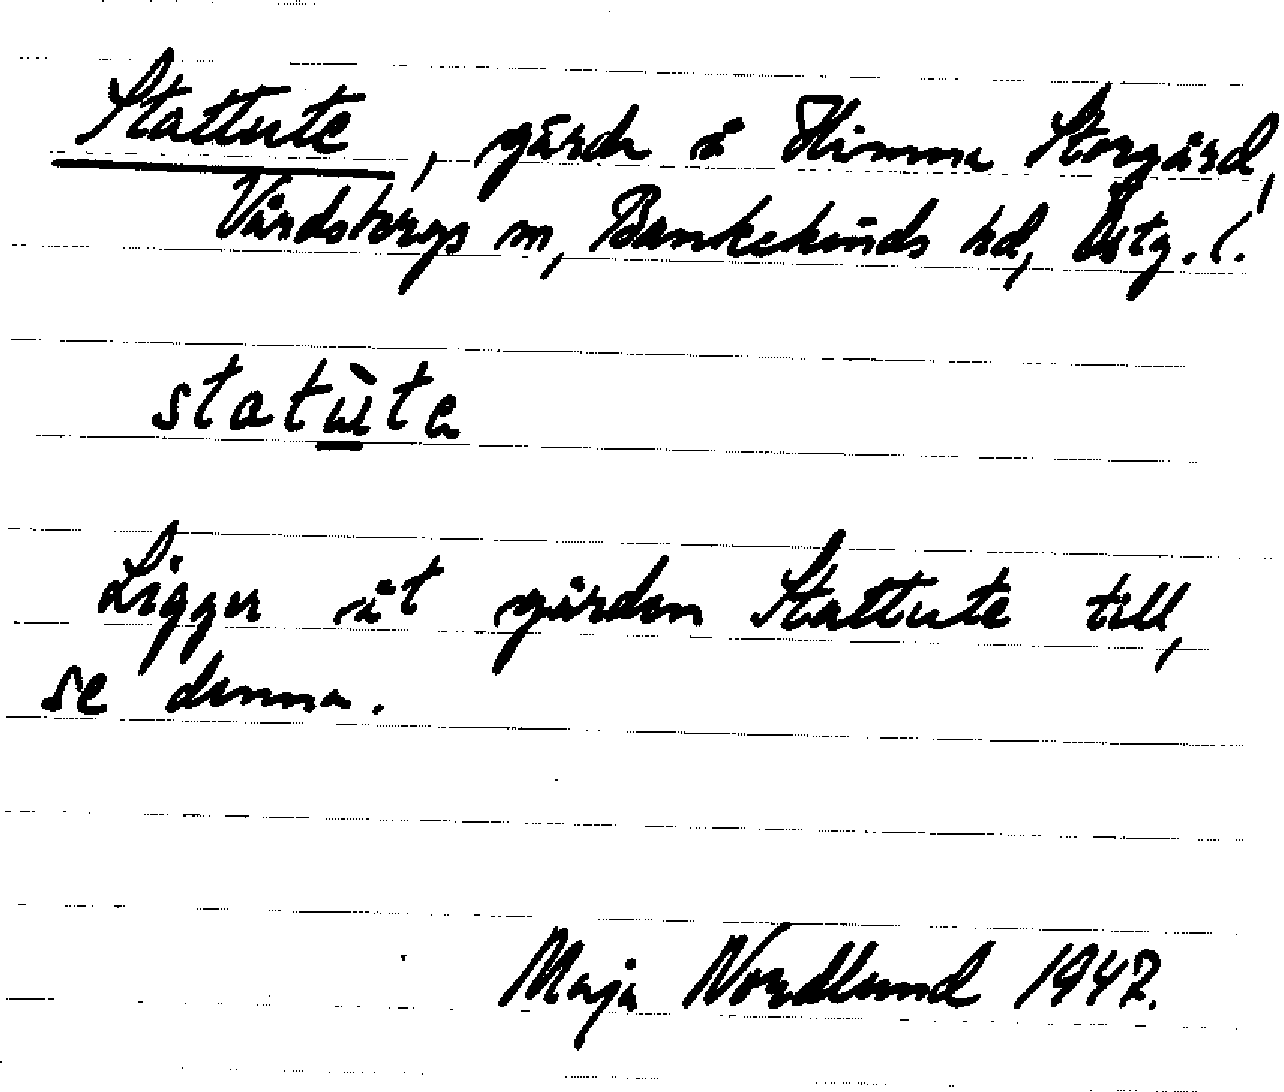 Stattute, gärde å Himna Storgård,
Vårdsbergs sn, Bankekinds hd, Östg. l.
statùta
Ligger åt gården Stattute till,
se denna.
Maja Nordlund 1942.